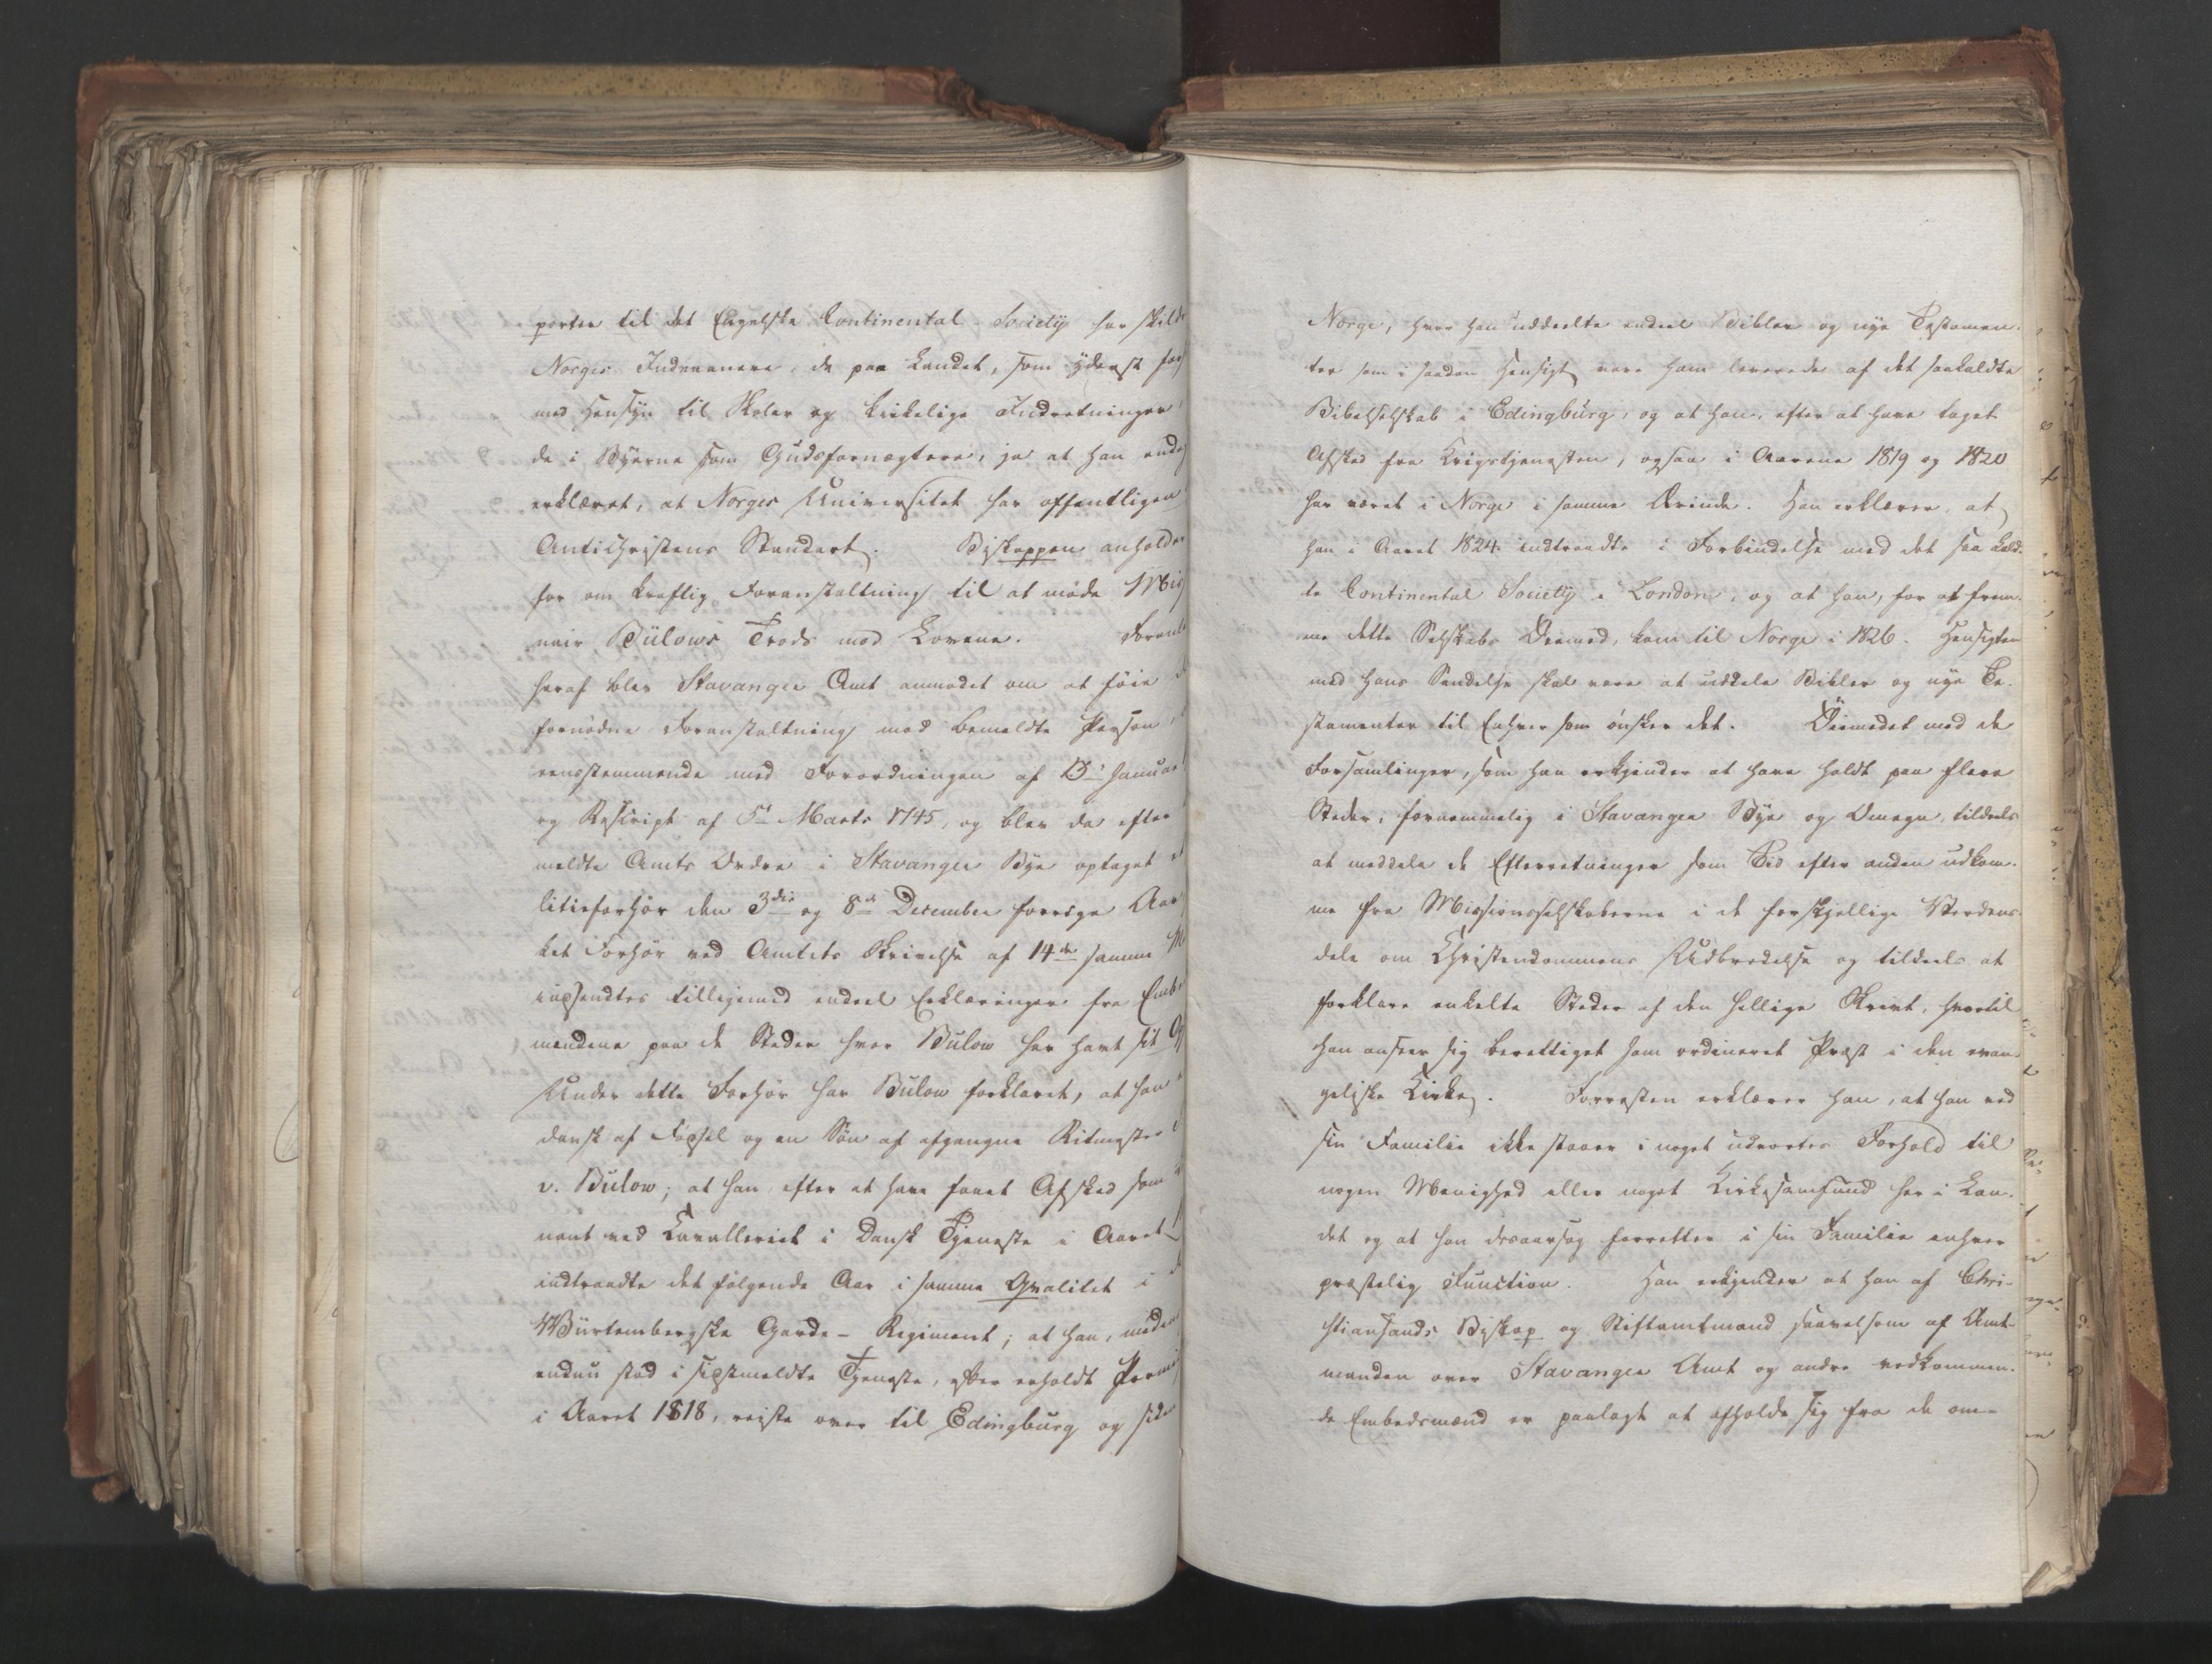 porter til det Engelske Continental Society har skild
Norges Indvaanere, de paa Landet, som yderst for
med Hensyn til Skoler og kirkelige Indretninger
de i Byerne som Gudsfornægtere, ja at han end
erklæret, at Norges Universitet har offentligen
Antichristens Standart. Biskoppen anholder
for om kraftig Foranstaltning til at møde Mis
nair Bülows Trods mod Lovene. Foranl
heraf blev Stavanger Amt anmodet om at föie
fornödne Foranstaltning mod bemeldte Person
eensstemmende med Forordningen af 13 Januar
og Rescript af 5t Marts 1745, og blev da efter
meldte Amts Ordre i Stavanger Bye optaget et
litieforhör den 3die og 8de December forrige Aar
ket Forhör ved Amtets Skrivelse af 14de samme M
indsendtes tilligemed endeel Erklæringer fra Emb
mændene paa de Steder hvor Bülow har havt sit O
Under dette Forhör har Bülow forklaret, at han
dansk af Födsel og en Sön af afgangne Ritmester
v. Bülow; at han efter at have faaet Afsked som
nant ved Cavalleriet i Dansk Tjeneste i Aaret
indtraadte det fölgende Aar i samme Qvalitet i
Würtembergske Garde-Regiment; at han, meden
endnu stod i sidstmeldte Tjeneste, efter erholdt Permis
i Aaret 1818, reiste over til Edingburg og side
Norge, hvor han uddeelte endeel Bibler og nye Testamen-
ter som i saadan Hensigt vare ham leverede af det saakaldte
Bibelselskab i Edingburg, og at han, efter at have taget
Afsked fra Krigstjenesten, ogsaa i Aarene 1819 og 1820
har været i Norge i samme Ærinde. Han erklærer, at
han i Aaret 1824 indtraadte i Forbindelse med det saa kald-
te Continental Society i London, og at han, for at frem-
me dette Selskabs Öiemed, kom til Norge i 1826. Hensigten
med hans Sendelse skal være at uddele Bibler og nye Te-
stamenter til Enhver som önsker det. Öiemedet med de
Forsamlinger, som han erkjender at have holdt paa flere
Steder, fornemmelig i Stavanger Bye og Omegn, tildeels
at meddele de Efterretninger som Tid efter anden udkom-
me fra Missionsselskaberne i de forskjellige Verdens-
dele om Christendommens Udbredelse og tildeels at
forklare enkelte Steder af den hellige Skrivt, hvortil
han anseer sig berettiget som ordineret Præst i den evan-
geliske Kirke. Forresten erklærer han, at han ved
sin Familie ikke staaer i noget udvortes Forhold til
nogen Menighed eller noget Kirkesamfund her i Lan-
det og at han desaarsag forretter i sin Familie enhver
præstelig Function. Han erkjender at han af Chri-
stiansands Biskop og Stiftamtmand saavelsom af Amt-
manden over Stavanger Amt og andre vedkommen-
de Embedsmænd er paalagt at afholde sig fra de om-